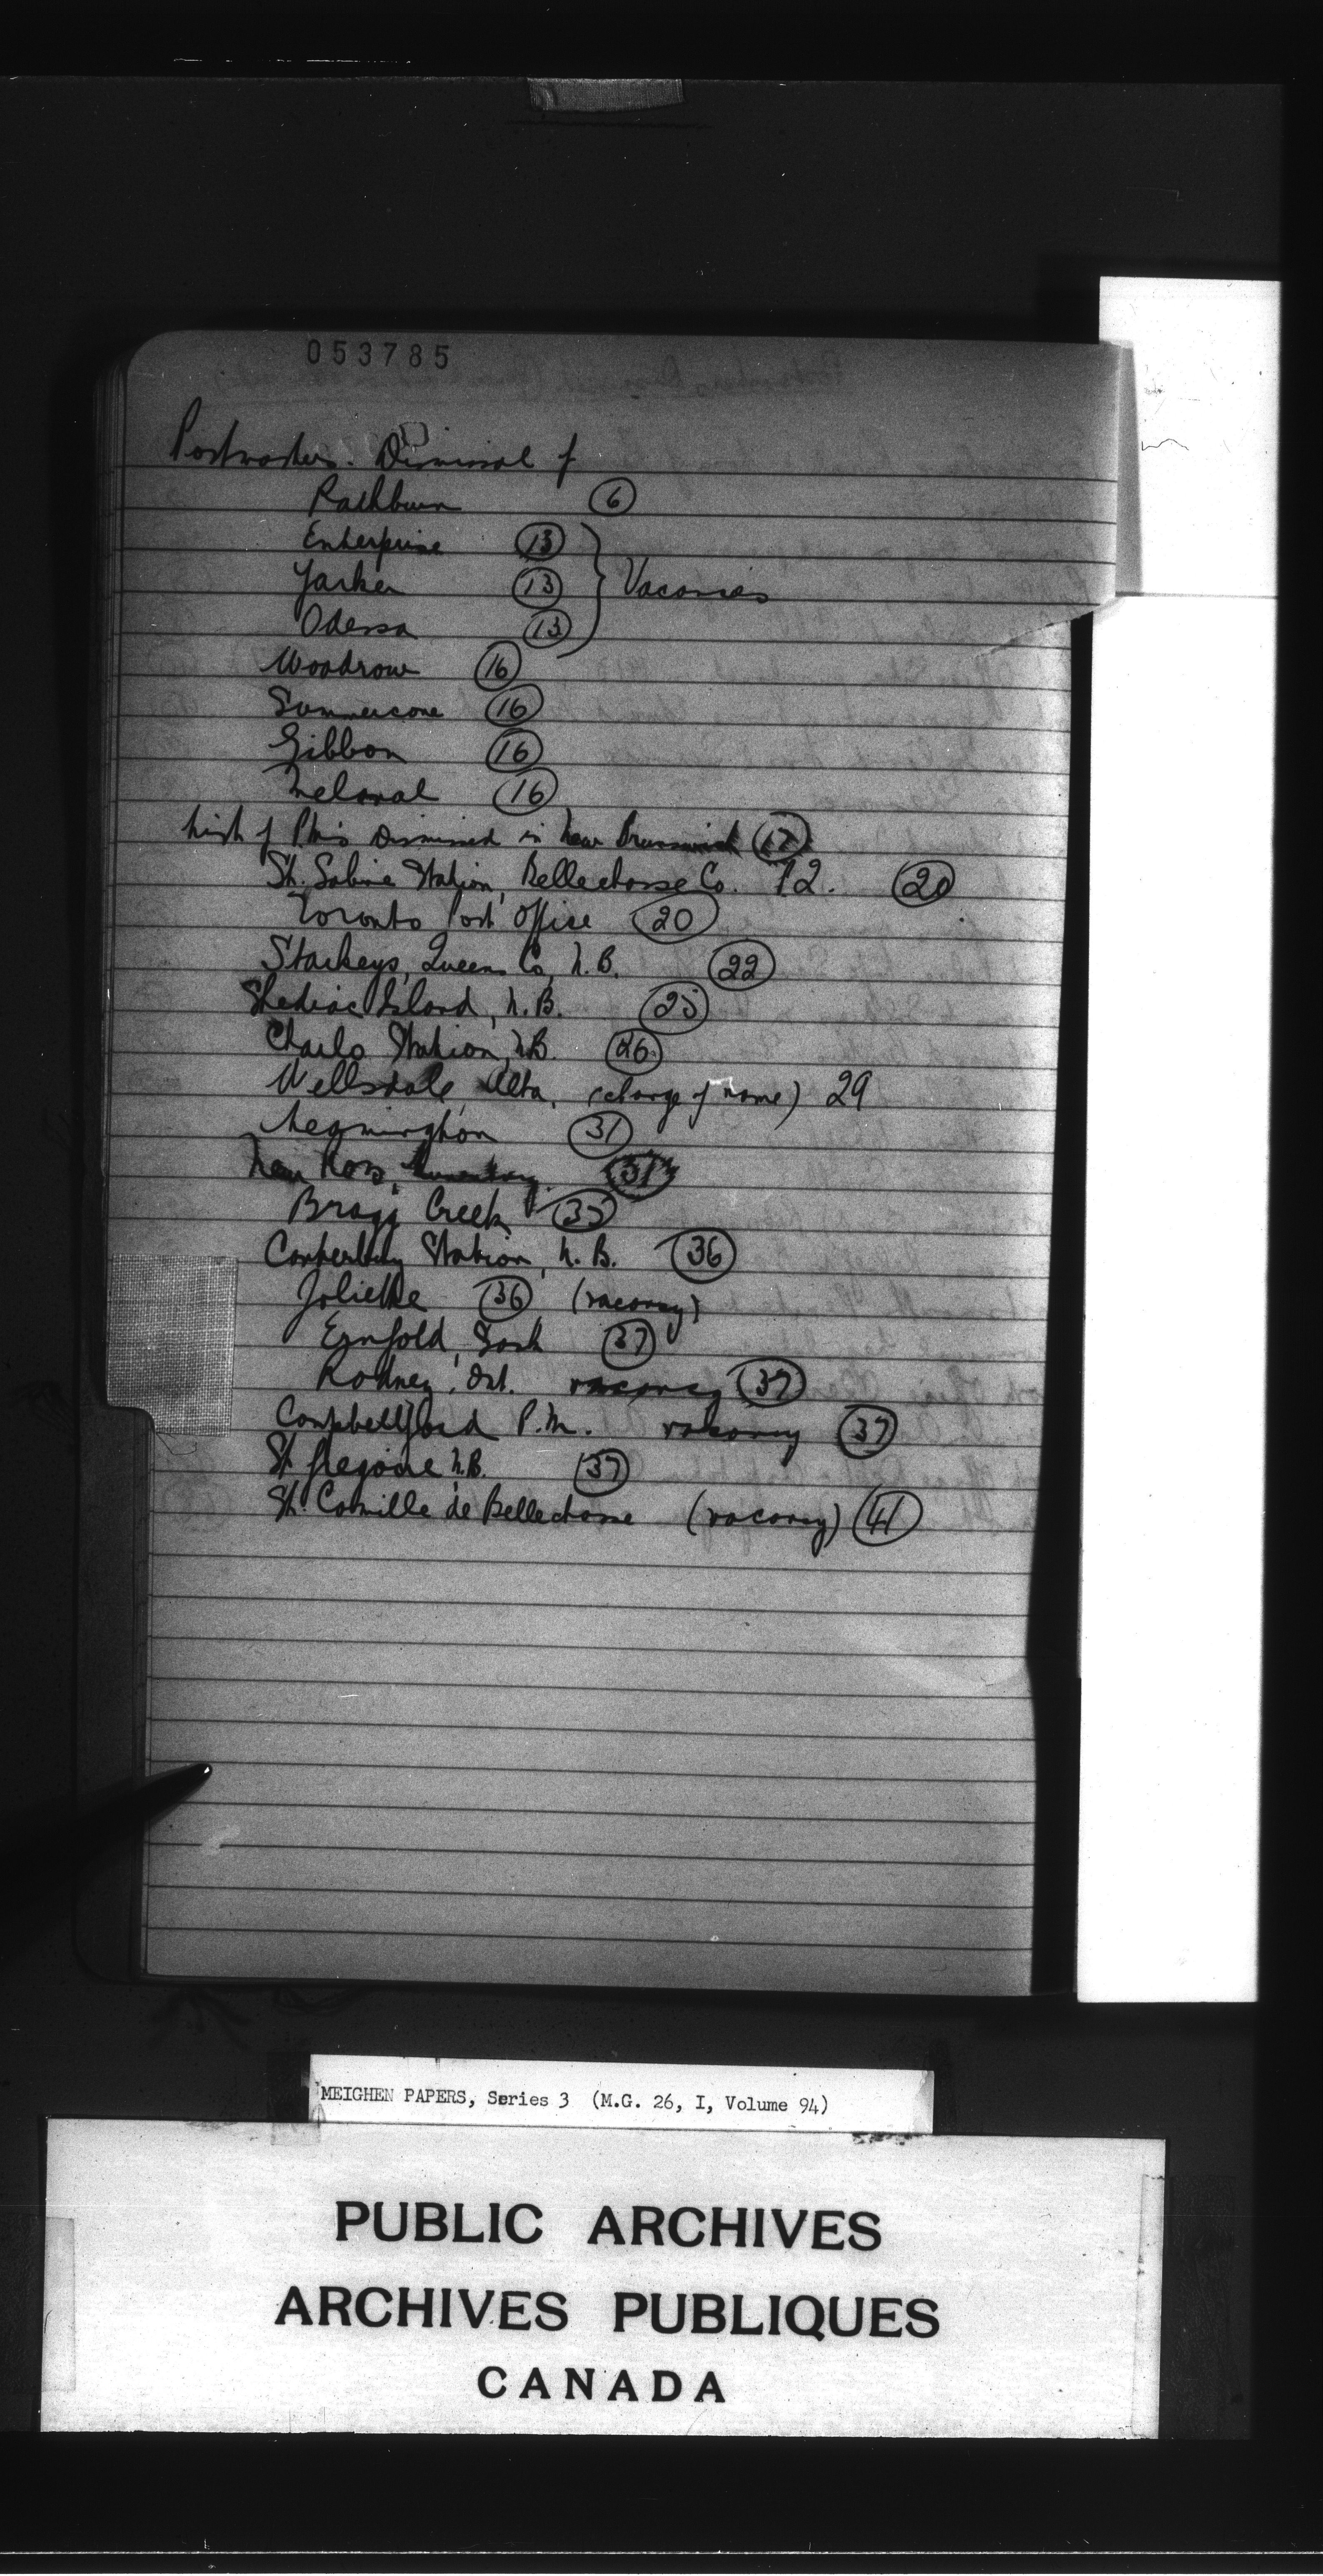 053785
Postmasters. Dismissal of
Rathburn 6
Enterprise 13
Yarker 13 Vacancies
Odessa 13
Woodrow 16
Summercove 16
Gibbon 16
Melaval 16
List of P.M's Dismissed in New Brunswick 17
St. Sabine Station, Bellechasse Co. P2. 20
Toronto Post Office 20
Starkeys, Queens Co, N.B. 22
Shediac Island, N.B. 25
Charlo Station, N.B. 26
Wellsdale, Alta. (change of name) 29
Leamington 31
New Ross, 31
Bragg Creek 35
Canterbury Station, N.B. 36
Joliette 36 (vacancy)
Ernfold, Sask 37
Rodney, Ont. vacancy 37
Campbellford P.M. vacancy 37
St Gregoire N.B. 37
St. Camille de Bellechasse (vacancy) 41
MEIGHEN PAPERS, Series 3 (M.G. 26, I, Volume 94)
PUBLIC ARCHIVES
ARCHIVES PUBLIQUES
CANADA